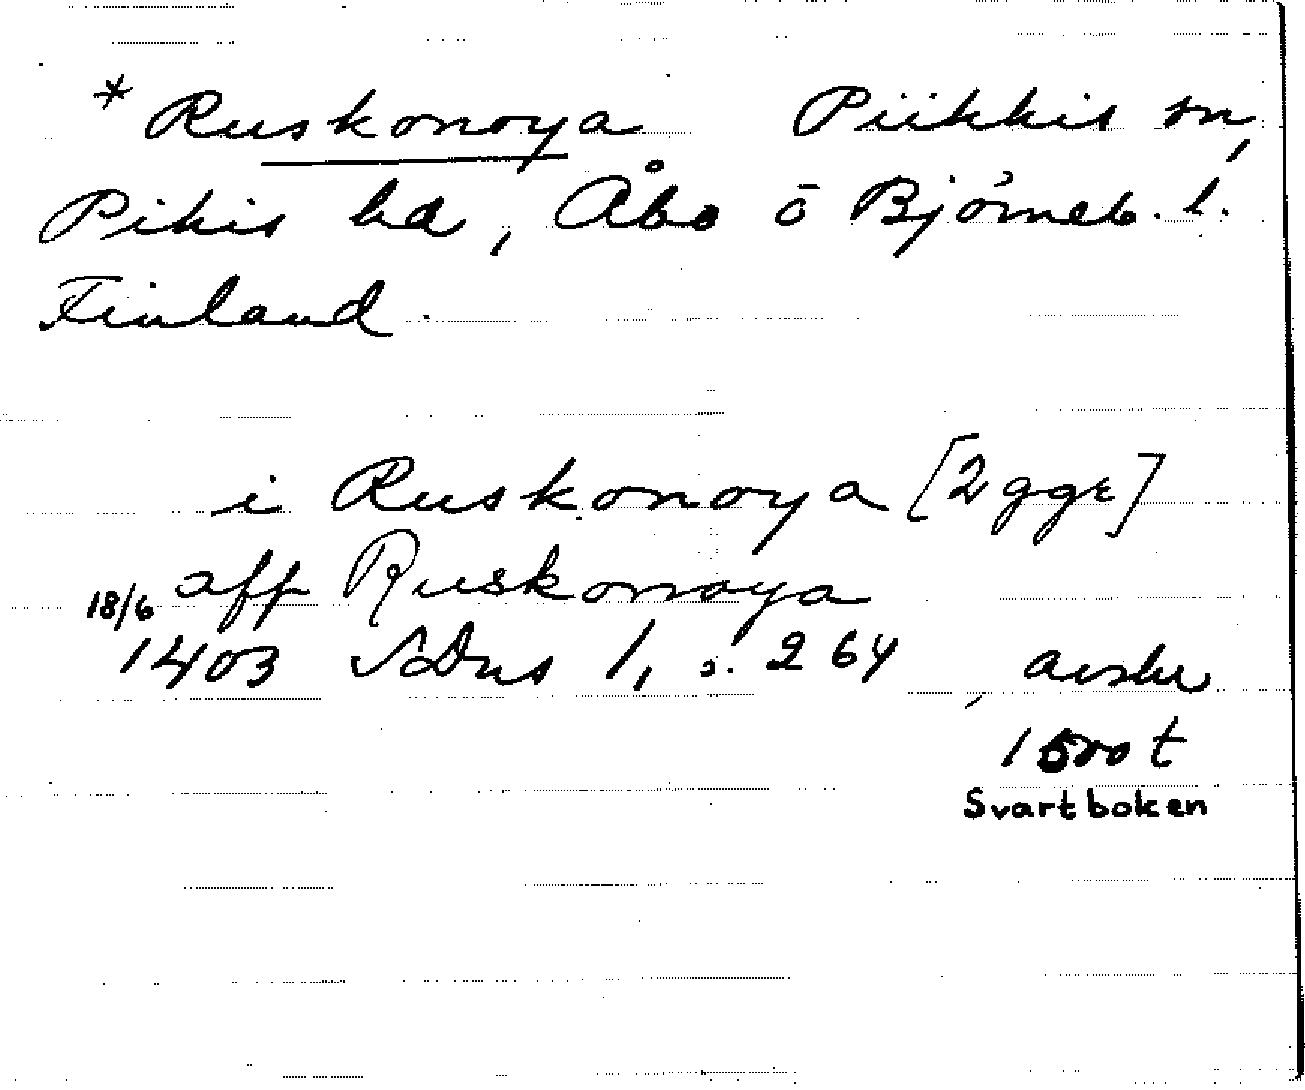 * Ruskonoya Piikkis sn,
Pikis hd, Åbo o Björneb. l.
Finland.
i Ruskonoya [2 ggr]
aff Ruskonoya
18/6 1403 SDns 1, s. 264, avskr
1500t
Svartboken